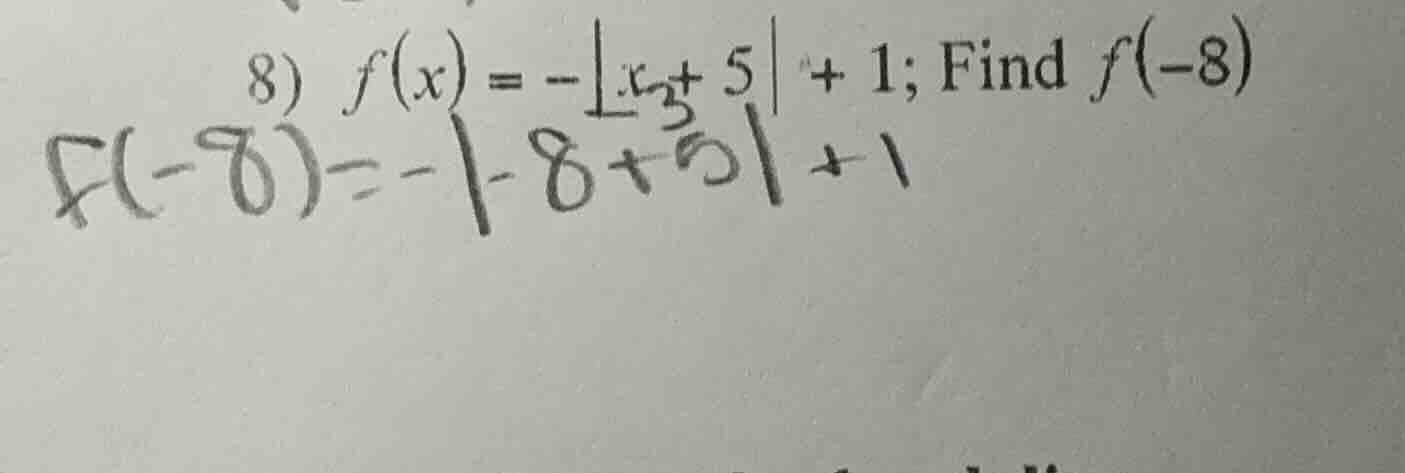 8) f(x) = -|x + 5| + 1; Find f(-8)
3
F(-8) = -|-8+5|+1